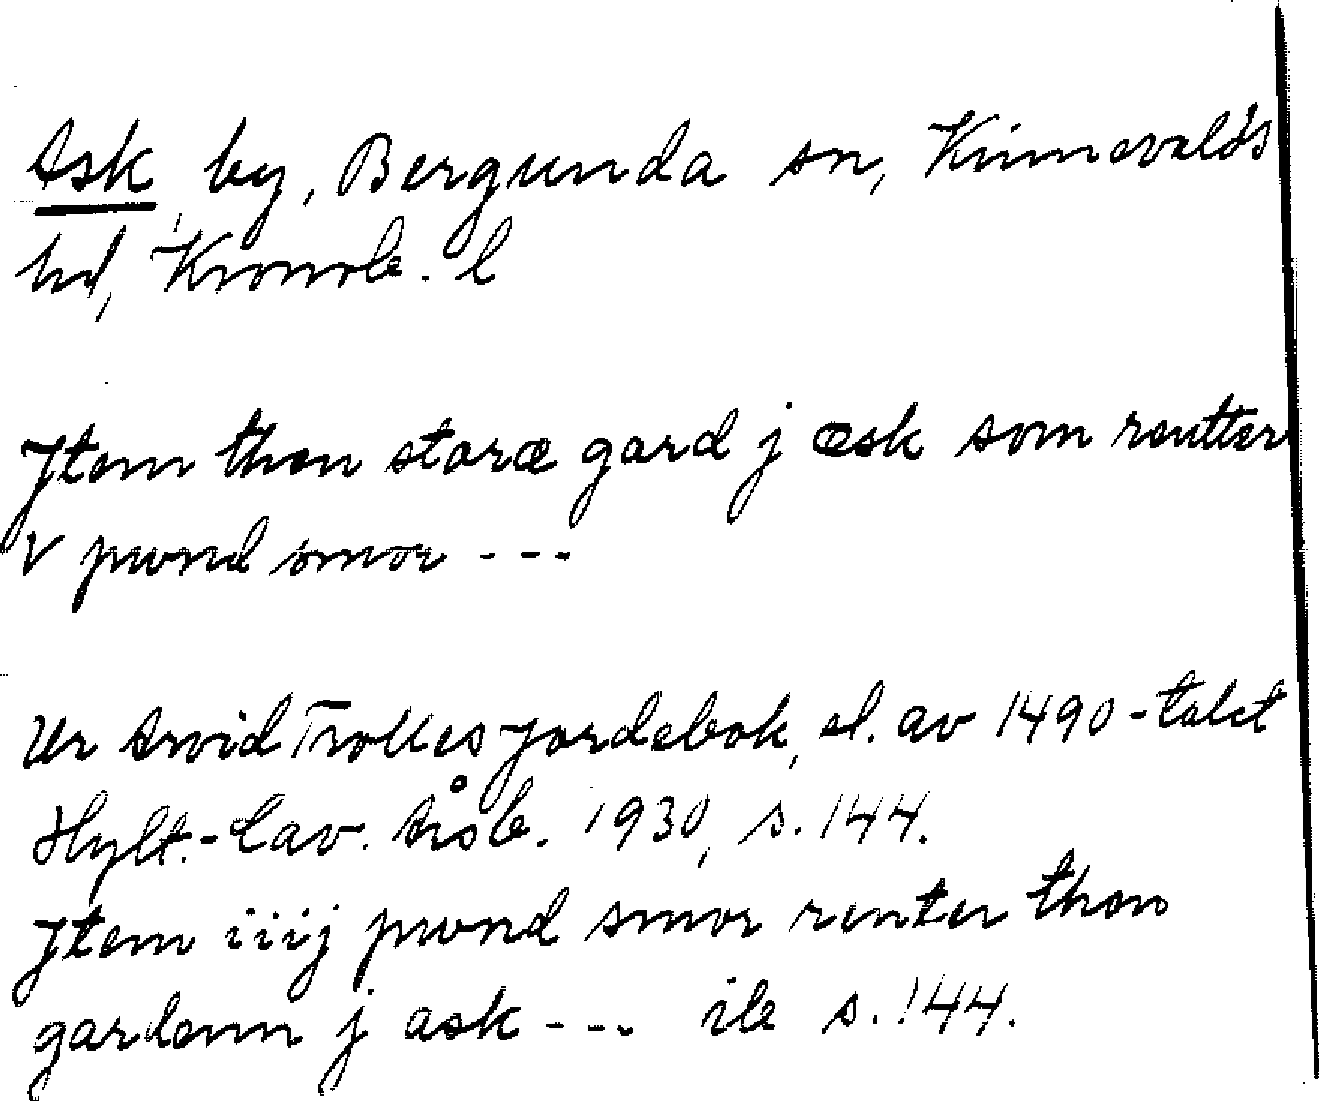 Ask by, Bergunda sn, Kinnevalds
hd, Kronob. l
Jtem then storæ gard j æsk som rentter
V pwnd smør ---
Ur Arvid Trolles jordebok, sl. av 1490-talet
Hylt.-Cav. Årsb. 1930, s. 144.
Jtem iiij pwnd smør renter then
gardenn j ask --- ib s. 144.